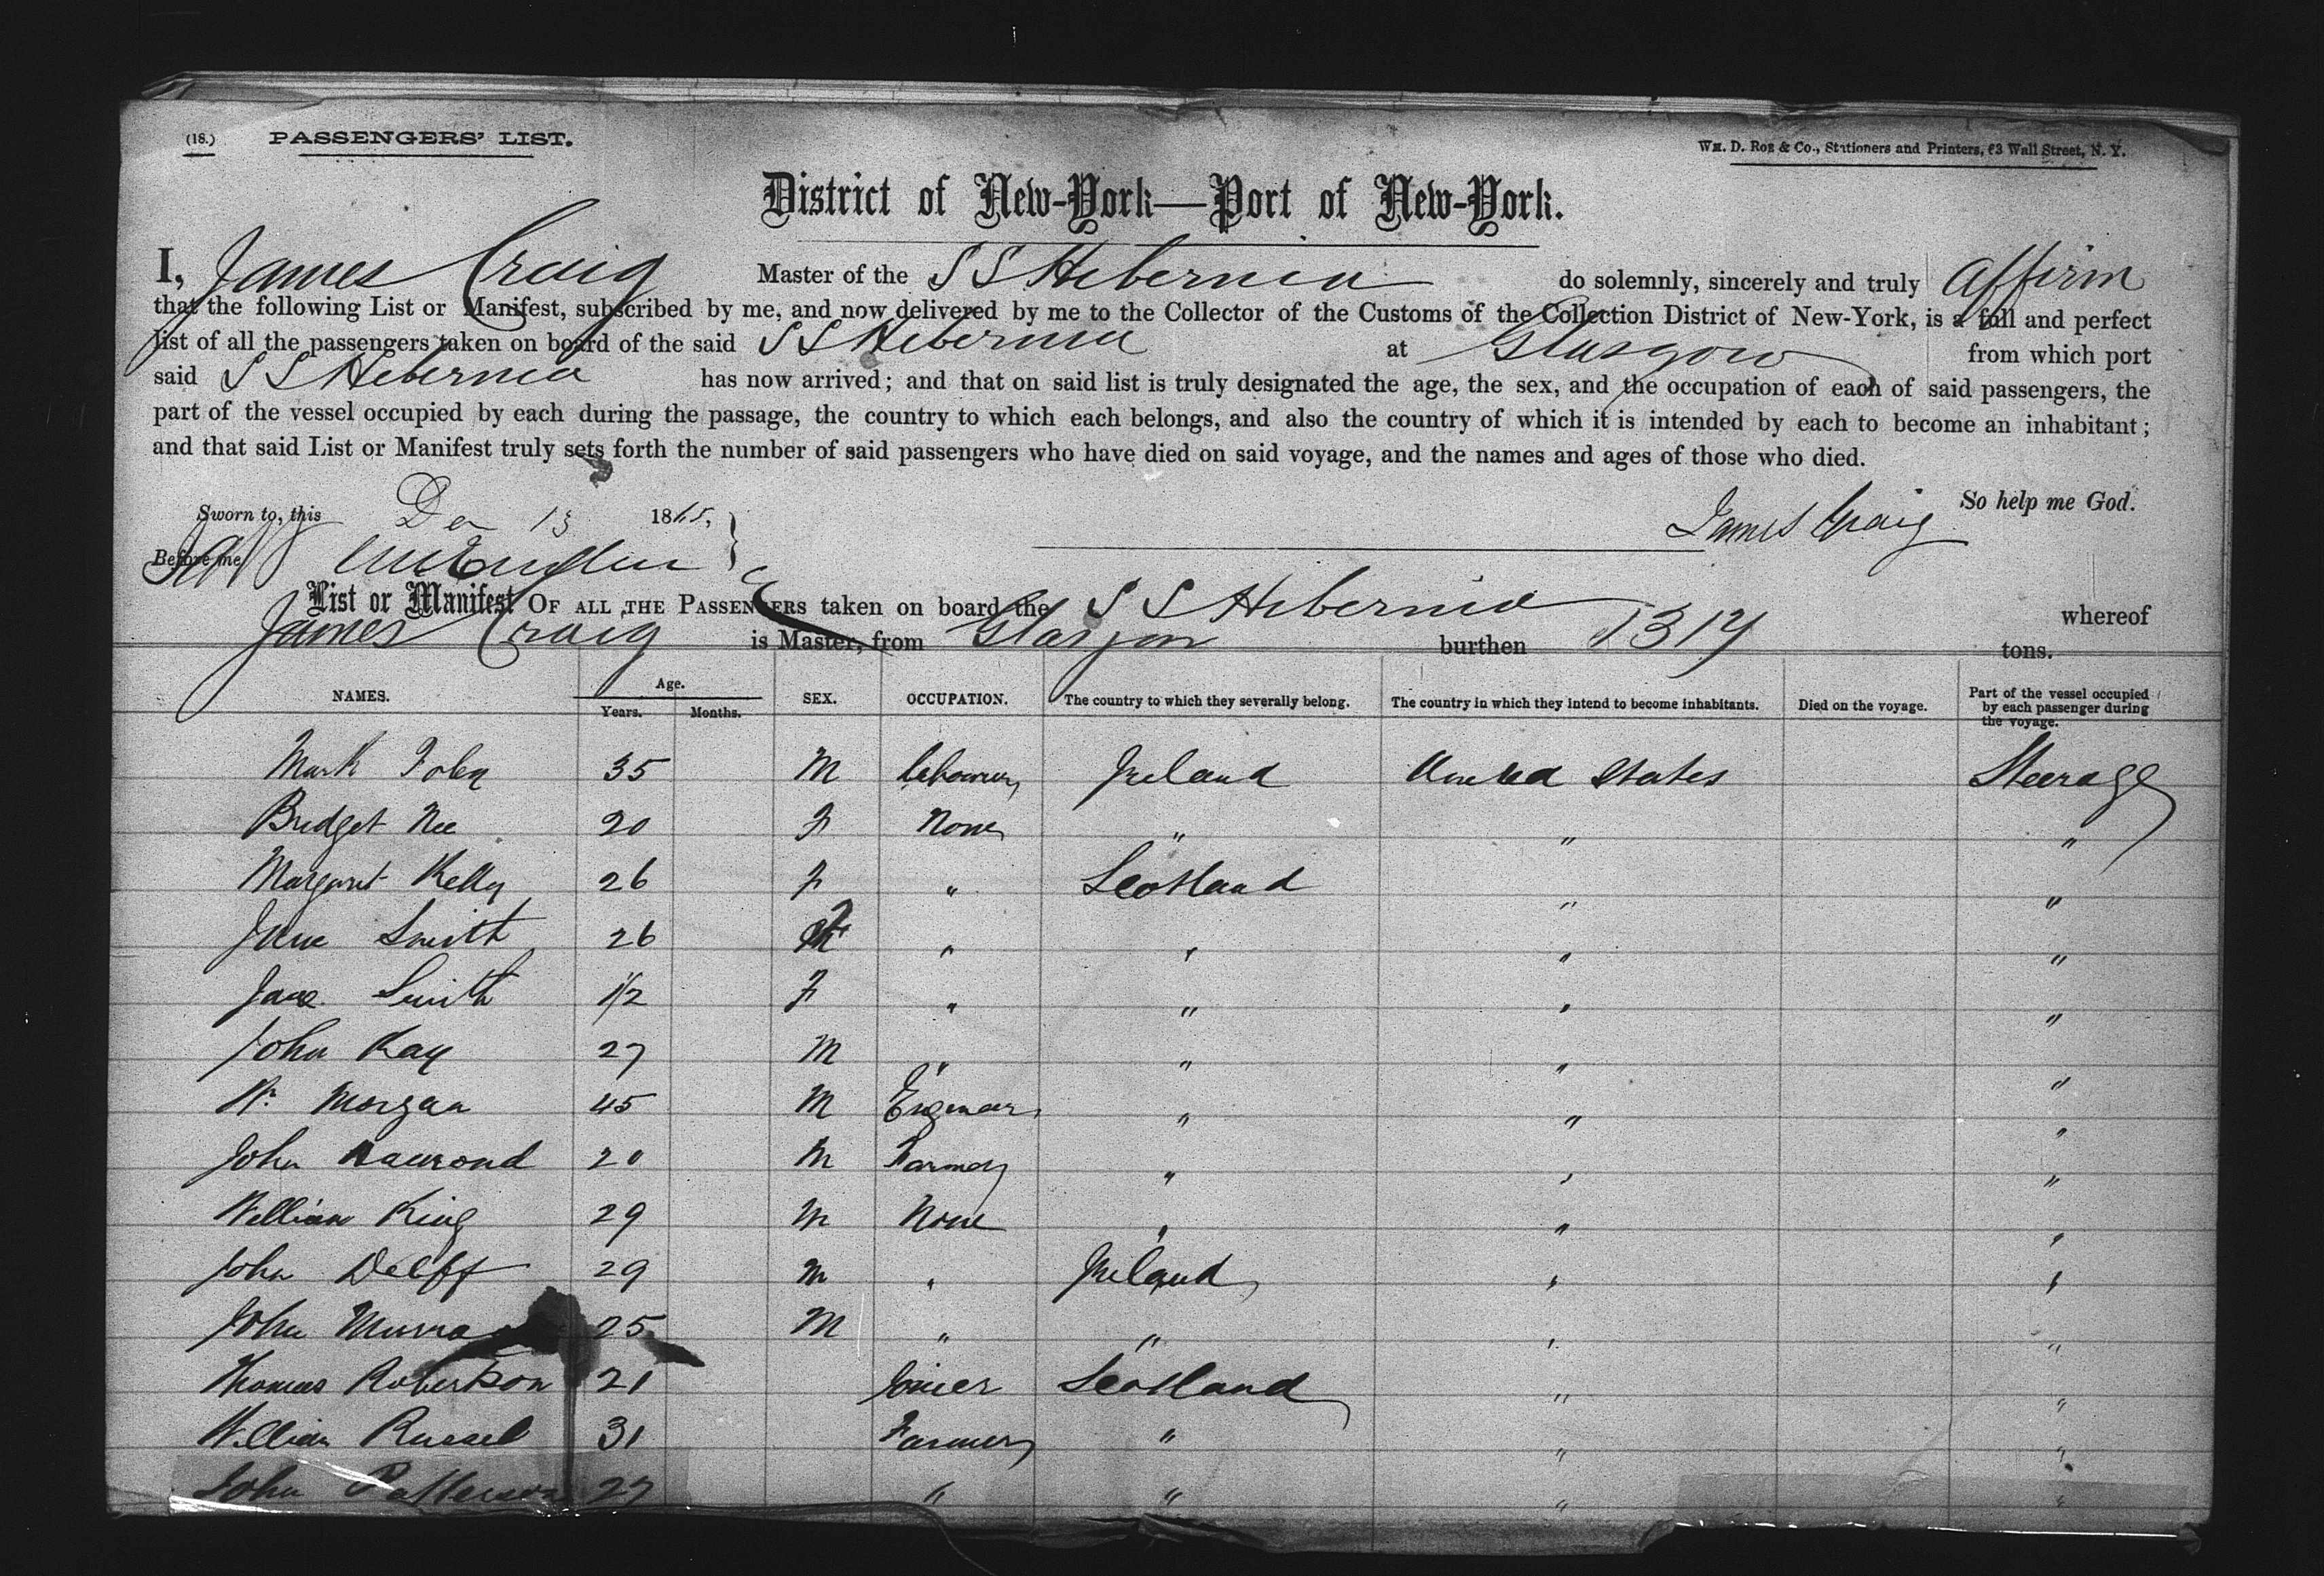 (18.) PASSENGERS' LIST. WM. D. ROE & Co., Stationers and Printers, 63 Wall Street, N. Y.
District of New-York—Port of New-York.
I, James Craig Master of the S S Hibernia do solemnly, sincerely and truly affirm
that the following List or Manifest, subscribed by me, and now delivered by me to the Collector of the Customs of the Collection District of New-York, is a full and perfect
list of all the passengers taken on board of the said S S Hibernia at Glasgow from which port
said S S Hibernia has now arrived; and that on said list is truly designated the age, the sex, and the occupation of each of said passengers, the
part of the vessel occupied by each during the passage, the country to which each belongs, and also the country of which it is intended by each to become an inhabitant;
and that said List or Manifest truly sets forth the number of said passengers who have died on said voyage, and the names and ages of those who died.
So help me God.
Sworn to, this Dec 13 1865, James Craig
Before me
List or Manifest OF ALL THE PASSENGERS taken on board the S S Hibernia whereof
James Craig is Master, from Glasgow burthen 1317 tons.
NAMES. Age. Years. Months. SEX. OCCUPATION. The country to which they severally belong. The country in which they intend to become inhabitants. Died on the voyage. Part of the vessel occupied by each passenger during the voyage.
Mark Foley 35 M labourer Ireland United States Steerage
Bridget Nee 20 F None " " "
Margaret Kelly 26 F " Scotland " "
Jane Smith 26 F " " " "
Jane Smith 1/2 F " " " "
John Kay 27 M " " " "
Wm Morgan 45 M Engineer " " "
John 20 M Farmer " " "
William King 29 M None " " "
John 29 M " Ireland " "
John Murra 25 M " " " "
Thomas Robertson 21 Joiner Scotland " "
William Russel 31 Farmer " " "
John Patterson 27 " " " "